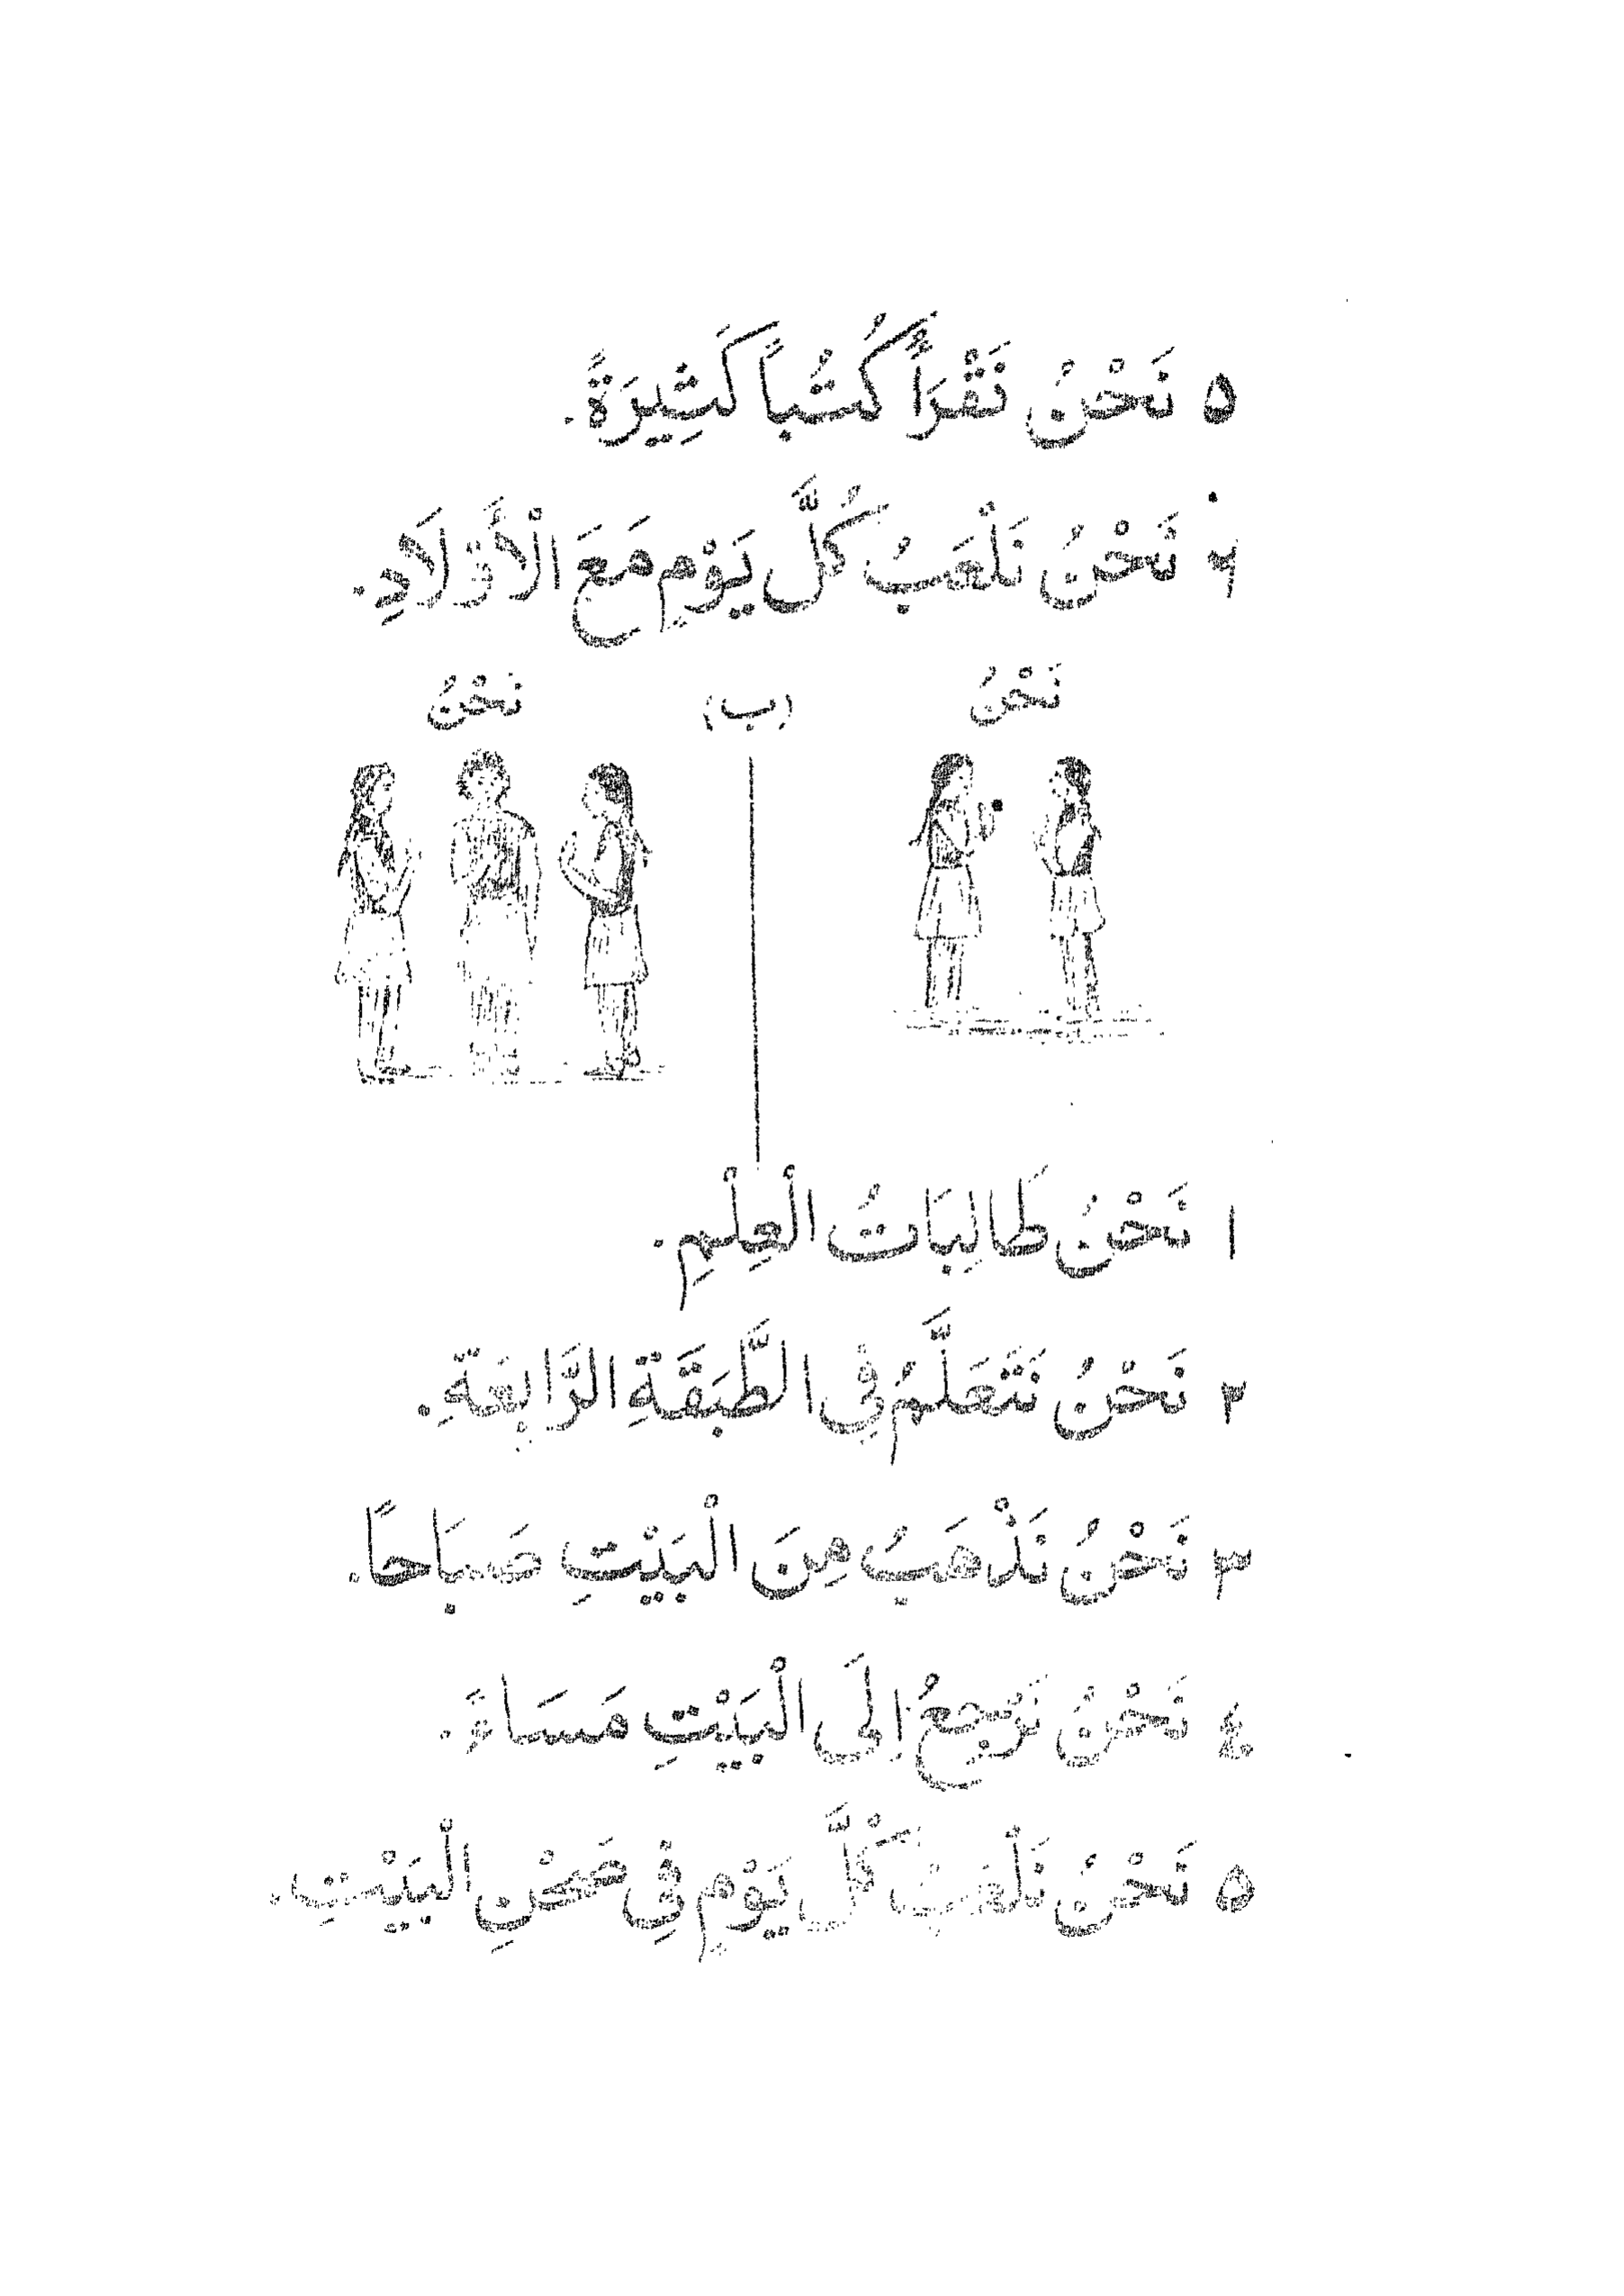 ٥ نَحْنُ نَقْرَأُ كُتُباً كَثِيرَةً.
٦ نَحْنُ نَلْعَبُ كُلَّ يَوْمٍ مَعَ الْأَوْلَادِ.
نَحْنُ (ب) نَحْنُ
١ نَحْنُ طَالِبَاتُ الْعِلْمِ.
٢ نَحْنُ نَتَعَلَّمُ فِي الطَّبَقَةِ الرَّابِعَةِ.
٣ نَحْنُ نَذْهَبُ مِنَ الْبَيْتِ صَبَاحًا.
٤ نَحْنُ نَرْجِعُ اِلَى الْبَيْتِ مَسَاءً.
٥ نَحْنُ نَلْعَبُ كُلَّ يَوْمٍ فِي صَحْنِ الْبَيْتِ.